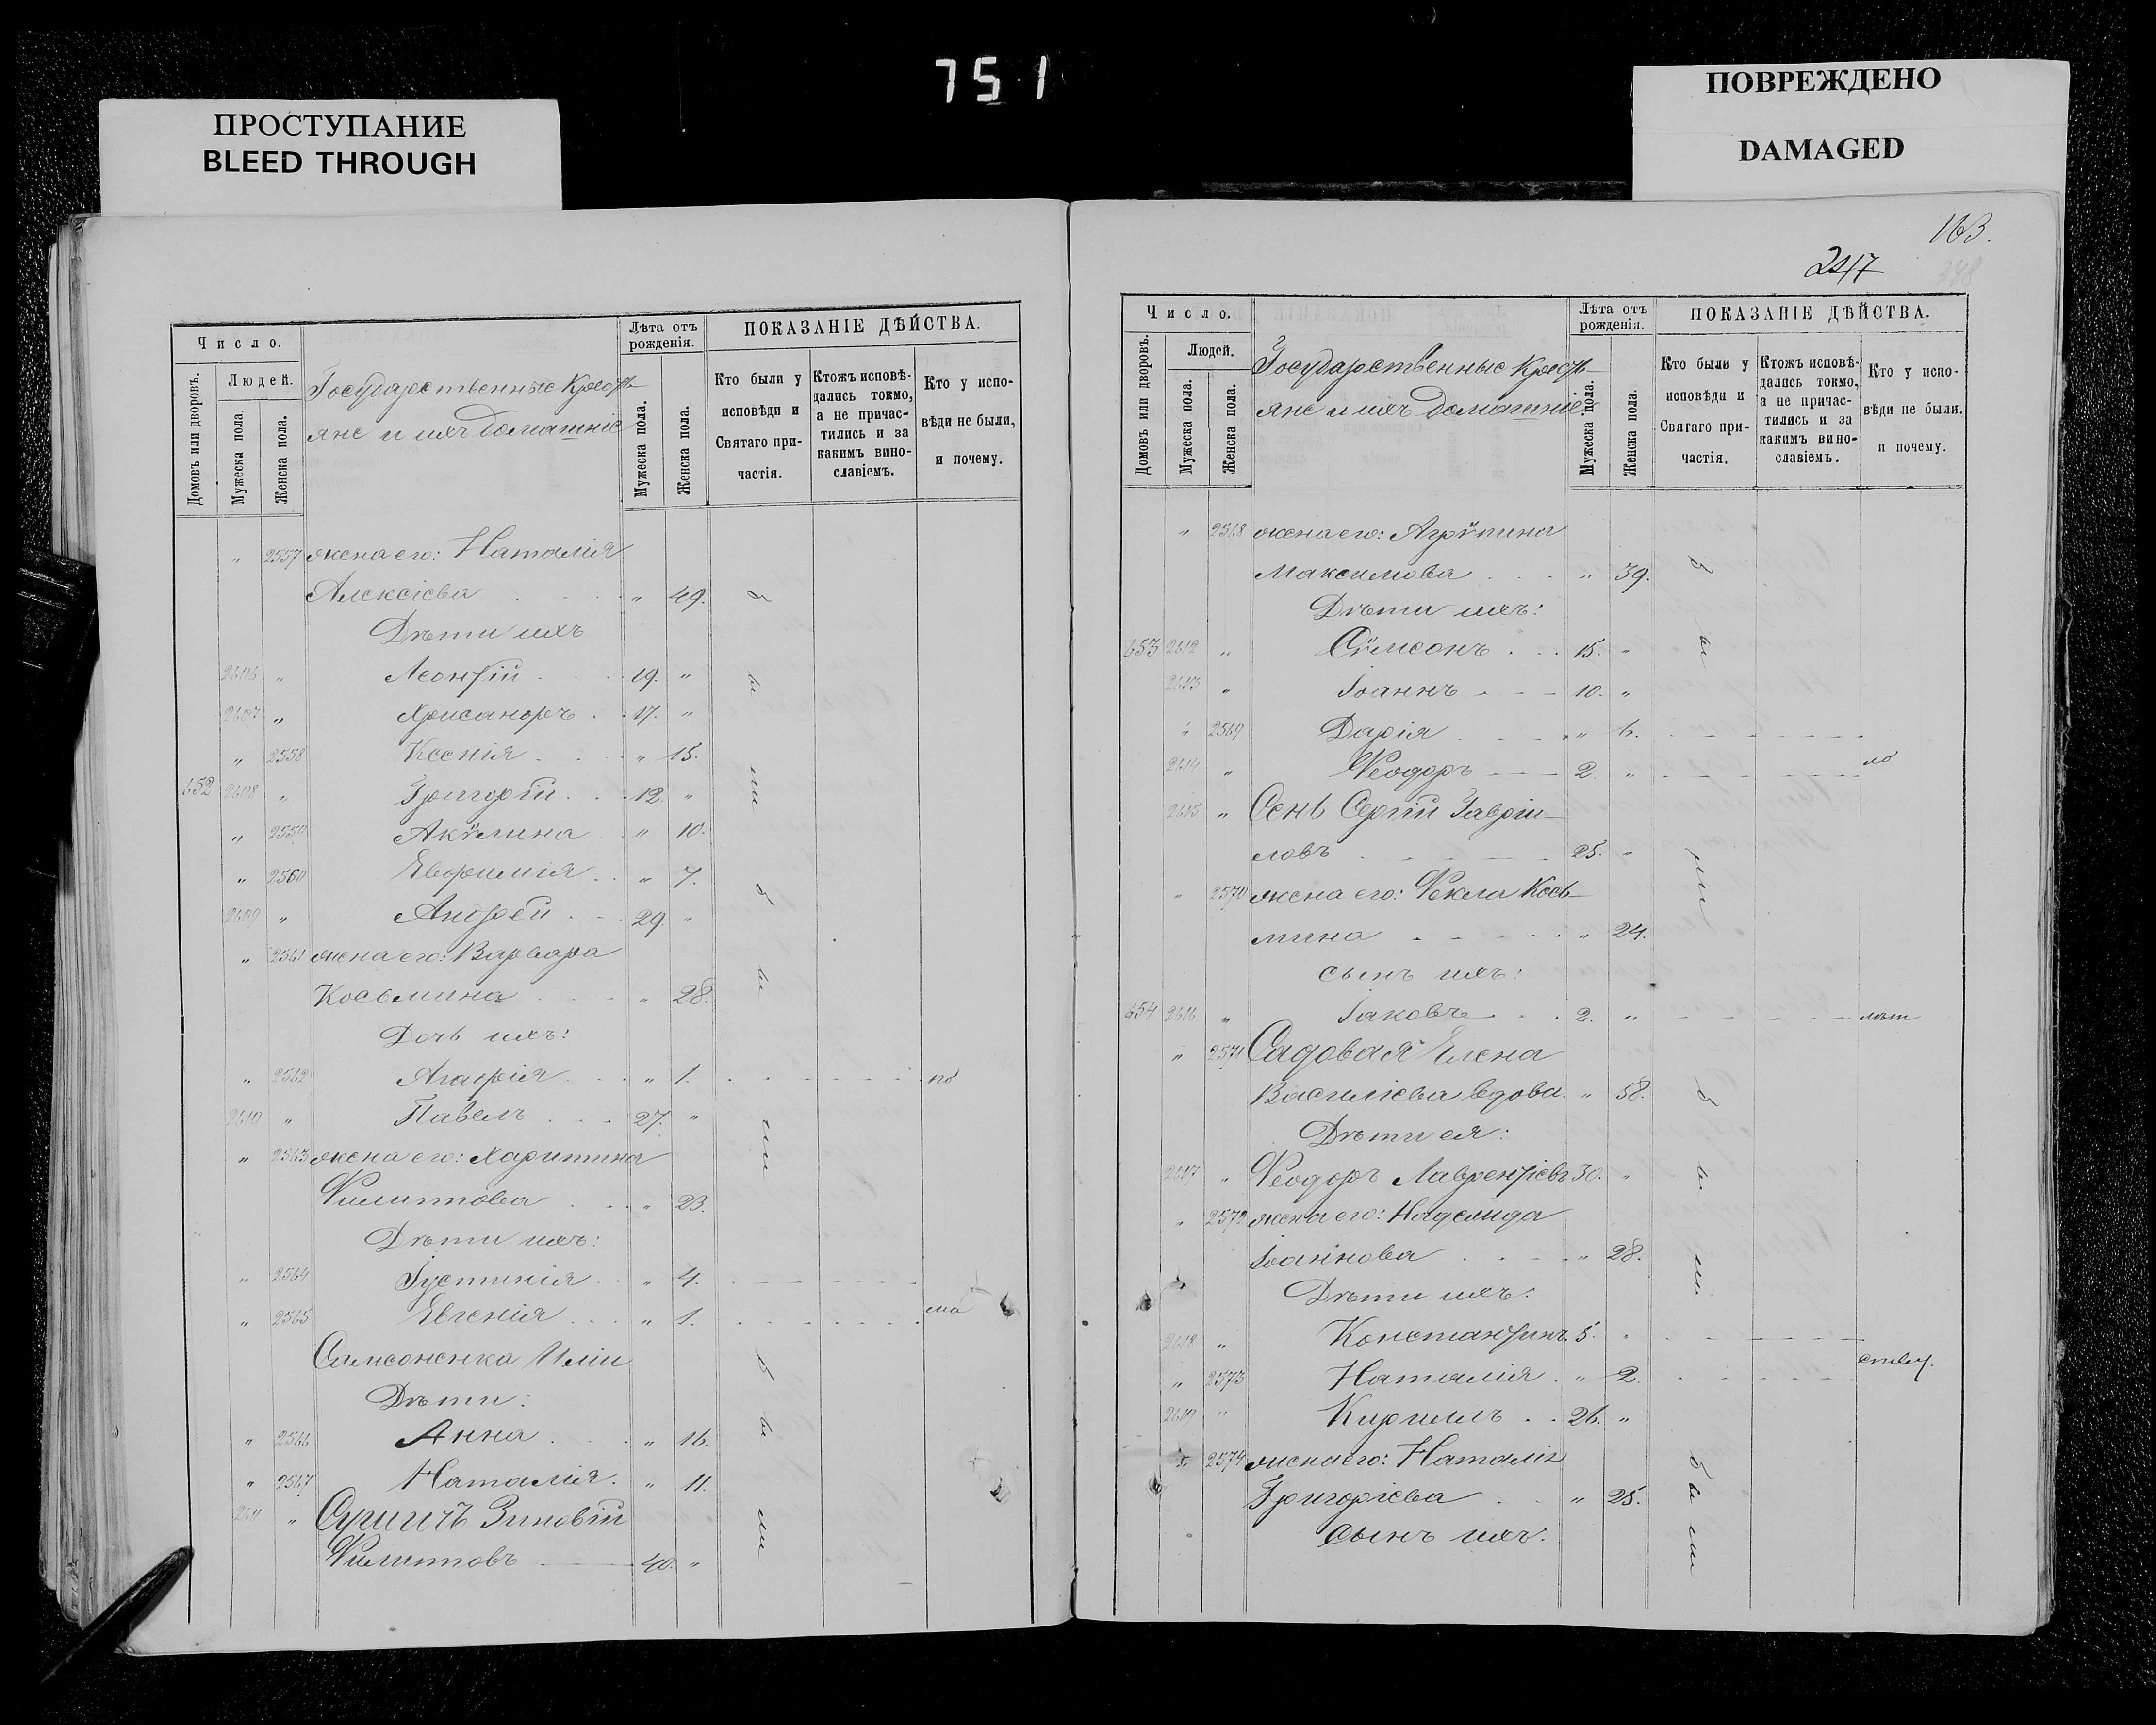 751
ПРОСТУПАНИЕ
BLEED THROUGH
ПОВРЕЖДЕНО
DAMAGED
Число.
Домовъ или дворовъ.
Людей.
Мужеска пола
Женска пола.
Государственные Кресть-
яне и ихъ домашніе
Лѣта отъ рожденія.
Мужеска пола.
Женска пола.
ПОКАЗАНІЕ ДѢЙСТВА.
Кто были у исповѣди и Святаго при-частія.
Ктожъ исповѣ-дались токмо, а не причас-тились и за какимъ вино-славіемъ.
Кто у испо-вѣди не были, и почему.
" 2557 жена его: Наталія
Алексіева " 49.
Дѣти ихъ
2606 " Леонтій 19. "
2607 " Хрисанфъ 17. "
" 2558 Ксенія " 15.
652 2608 " Григорій 12. "
" 2559 Акѵлина " 10.
" 2560 Евфимія " 7.
2609 " Андрей 29. "
" 2561 жена его: Варвара
Косьмина " 28.
Дочь ихъ:
" 2562 Агафія " 1. по
2610 " Павелъ 27. "
" 2563 жена его: Харитина
Филиппова " 23.
Дѣти ихъ:
" 2564 Іустинія " 4.
" 2565 Евгенія " 1. ма
Самсоненка Иліи
Дѣти:
" 2566 Анна " 16.
" 2567 Наталія " 11.
2611 " Зиновій
Филипповъ 40. "
были
были
были
163.
247
348
Число.
Домовъ или дворовъ.
Людей.
Мужеска пола.
Женска пола.
Государственные Кресть-
яне и ихъ домашніе
Лѣта отъ рожденія.
Мужеска пола.
Женска пола.
ПОКАЗАНІЕ ДѢЙСТВА.
Кто были у исповѣди и Святаго при-частія.
Ктожъ исповѣ-дались токмо, а не причас-тились и за какимъ вино-славіемъ.
Кто у испо-вѣди не были. и почему.
" 2568 жена его: Агрѵпина
Максимова " 39.
Дѣти ихъ:
653 2612 " Сѵмеонъ 15. "
2613 " Іоаннъ 10. "
" 2569 Дарія " 6.
2614 " Феодоръ 2. " ло
2615 " Сень Сергій Гавріи-
ловъ 25. "
" 2570 жена его: Фекла Кось-
мина " 24.
сынъ ихъ:
654 2616 " Іаковъ 2. " лѣт
" 2571 Садовая Елена
Василіева вдова. " 58.
Дѣти ея:
2617 " Феодоръ Лаврентіевъ 30. "
" 2572 жена его: Надежда
Іоаннова " 28.
Дѣти ихъ:
2618 " Константинъ 5. "
" 2573 Наталія " 2. ству.
2619 " Кириллъ 26. "
" 2574 жена его: Наталія
Григоріева " 25.
Сынъ ихъ.
были
были
были